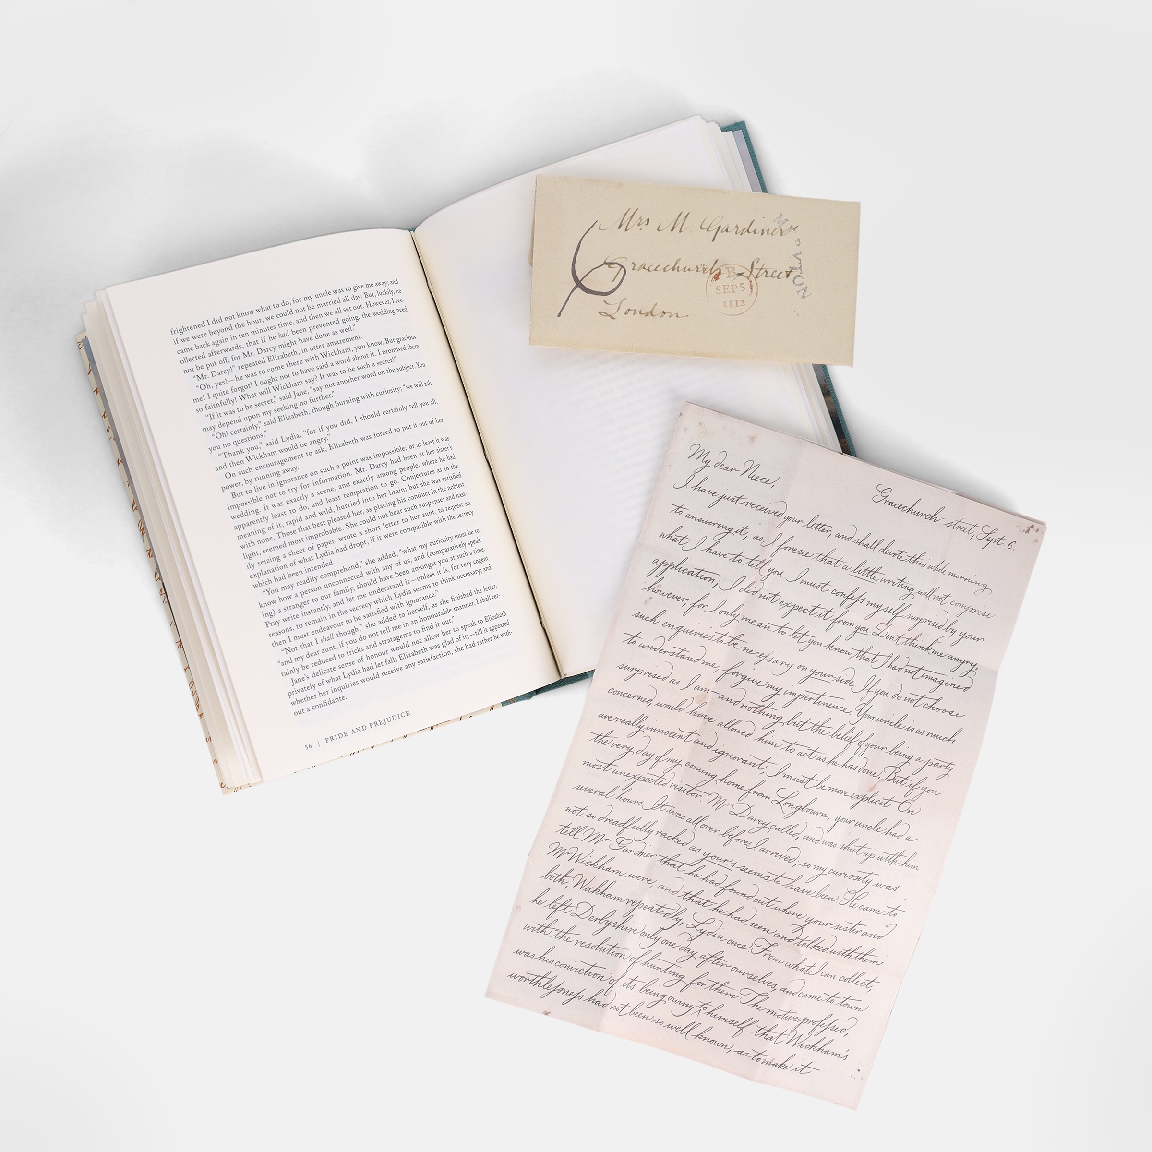 frightened I did not know what to do, for my uncle was to give me away; and
if we were beyond the hour, we could not be married all day. But, luckily, he
came back again in ten minutes time, and then we all set out. However, I rec-
ollected afterwards, that if he had been prevented going, the wedding need
not be put off, for Mr. Darcy might have done as well."
"Mr. Darcy!" repeated Elizabeth, in utter amazement.
"Oh, yes!—he was to come there with Wickham, you know. But gracious
me! I quite forgot! I ought not to have said a word about it. I promised them
so faithfully! What will Wickham say? It was to be such a secret!"
"If it was to be secret," said Jane, "say not another word on the subject. You
may depend upon my seeking no further."
"Oh! certainly," said Elizabeth, though burning with curiosity; "we will ask
you no questions."
"Thank you," said Lydia, "for if you did, I should certainly tell you all,
and then Wickham would be angry."
On such encouragement to ask, Elizabeth was forced to put it out of her
power, by running away.
But to live in ignorance on such a point was impossible; or at least it was
impossible not to try for information. Mr. Darcy had been at her sister's
wedding. It was exactly a scene, and exactly among people, where he had
apparently least to do, and least temptation to go. Conjectures as to the
meaning of it, rapid and wild, hurried into her brain; but she was satisfied
with none. Those that best pleased her, as placing his conduct in the noblest
light, seemed most improbable. She could not bear such suspense; and hast-
ily seizing a sheet of paper, wrote a short letter to her aunt, to request an
explanation of what Lydia had dropt, if it were compatible with the secrecy
which had been intended.
"You may readily comprehend," she added, "what my curiosity must be to
know how a person unconnected with any of us, and (comparatively speak-
ing) a stranger to our family, should have been amongst you at such a time.
Pray write instantly, and let me understand it—unless it is, for very cogent
reasons, to remain in the secrecy which Lydia seems to think necessary; and
then I must endeavour to be satisfied with ignorance."
"Not that I shall though," she added to herself, as she finished the letter;
"and my dear aunt, if you do not tell me in an honourable manner, I shall cer-
tainly be reduced to tricks and stratagems to find it out."
Jane's delicate sense of honour would not allow her to speak to Elizabeth
privately of what Lydia had let fall; Elizabeth was glad of it;—till it appeared
whether her inquiries would receive any satisfaction, she had rather be with-
out a confidante.
56 | PRIDE AND PREJUDICE
Mrs M. Gardiner
Gracechurch Street
London
6
SEP 5
1812
Gracechurch-street, Sept. 6.
My dear Niece,
I have just received your letter, and shall devote this whole morning
to answering it, as I foresee that a little writing will not comprise
what I have to tell you. I must confess myself surprised by your
application; I did not expect it from you. Don't think me angry,
however, for I only mean to let you know that I had not imagined
such enquiries to be necessary on your side. If you do not choose
to understand me, forgive my impertinence. Your uncle is as much
surprised as I am—and nothing but the belief of your being a party
concerned, would have allowed him to act as he has done. But if you
are really innocent and ignorant, I must be more explicit. On
the very day of my coming home from Longbourn, your uncle had a
most unexpected visitor. Mr. Darcy called, and was shut up with him
several hours. It was all over before I arrived; so my curiosity was
not so dreadfully racked as your's seems to have been. He came to
tell Mr. Gardiner that he had found out where your sister and
Mr Wickham were, and that he had seen and talked with them
both, Wickham repeatedly, Lydia once. From what I can collect,
he left Derbyshire only one day after ourselves, and came to town
with the resolution of hunting for them. The motive professed,
was his conviction of its being owing to himself that Wickham's
worthlessness had not been so well known, as to make it